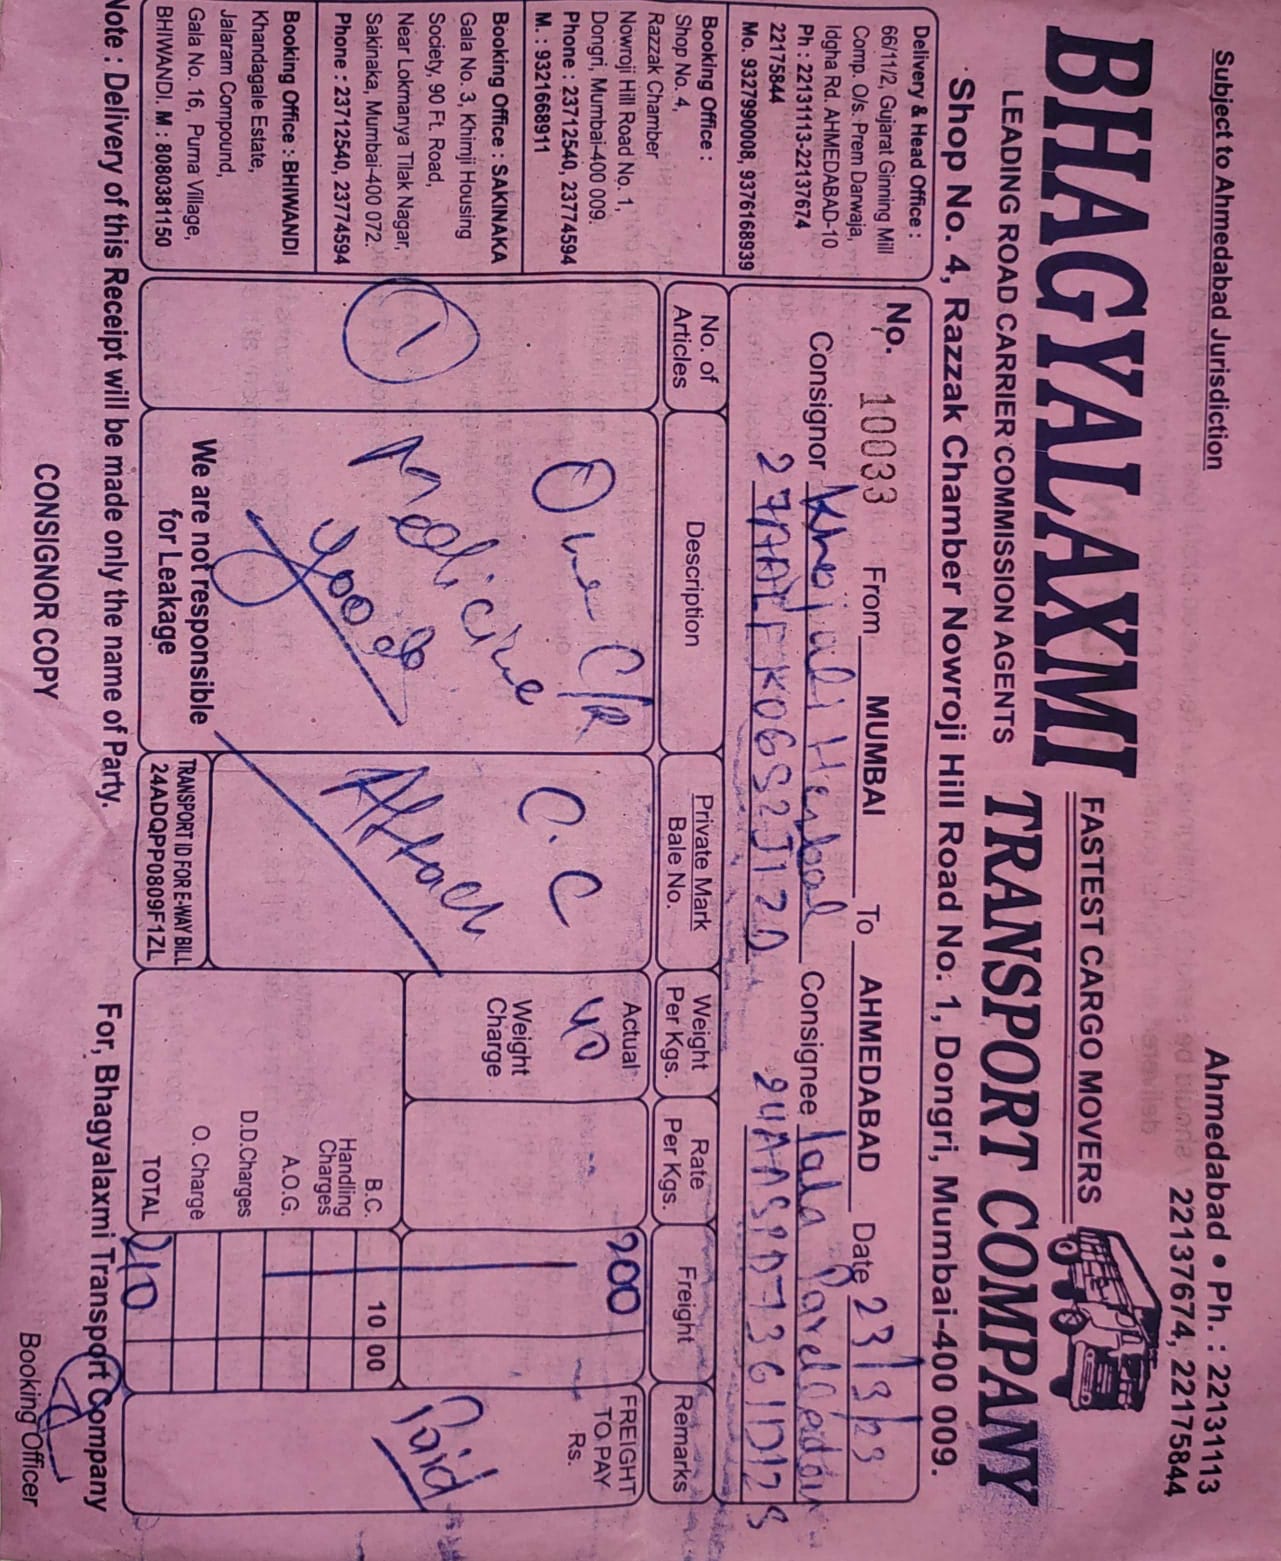 Subject to Ahmedabad Jurisdiction
Ahmedabad • Ph. : 22131113
22137674, 22175844
BHAGYALAXMI
FASTEST CARGO MOVERS
LEADING ROAD CARRIER COMMISSION AGENTS
TRANSPORT COMPANY
Shop No. 4, Razzak Chamber Nowroji Hill Road No. 1, Dongri, Mumbai-400 009.
Delivery & Head Office :
66/11/2, Gujarat Ginning Mill
Comp. O/s. Prem Darwaja,
Idgha Rd. AHMEDABAD-10
Ph : 22131113-22137674
22175844
Mo. 9327990008, 9376168939
Booking Office :
Shop No. 4,
Razzak Chamber
Nowroji Hill Road No. 1,
Dongri, Mumbai-400 009.
Phone : 23712540, 23774594
M. : 9321668911
Booking Office : SAKINAKA
Gala No. 3, Khimji Housing
Society, 90 Ft. Road,
Near Lokmanya Tilak Nagar,
Sakinaka, Mumbai-400 072.
Phone : 23712540, 23774594
Booking Office : BHIWANDI
Khandagale Estate,
Jalaram Compound,
Gala No. 16, Purna Village,
BHIWANDI. M : 8080381150
No. 10033 From MUMBAI To AHMEDABAD Date 23/3/23
Consignor Khojali Herbal Consignee
No. of Articles
Description
Private Mark
Bale No.
Weight Per Kgs.
Rate Per Kgs.
Freight
Remarks
1
One C/R
Medicine
Goods
We are not responsible
for Leakage
C.C
Attach
TRANSPORT ID FOR E-WAY BILL
24ADQPP0809F1ZL
Actual
40
Weight
Charge
200
B.C. 10 00
Handling
Charges
A.O.G.
D.D.Charges
O. Charge
TOTAL 210
FREIGHT
TO PAY
Rs.
Paid
Note : Delivery of this Receipt will be made only the name of Party.
For, Bhagyalaxmi Transport Company
CONSIGNOR COPY
Booking Officer